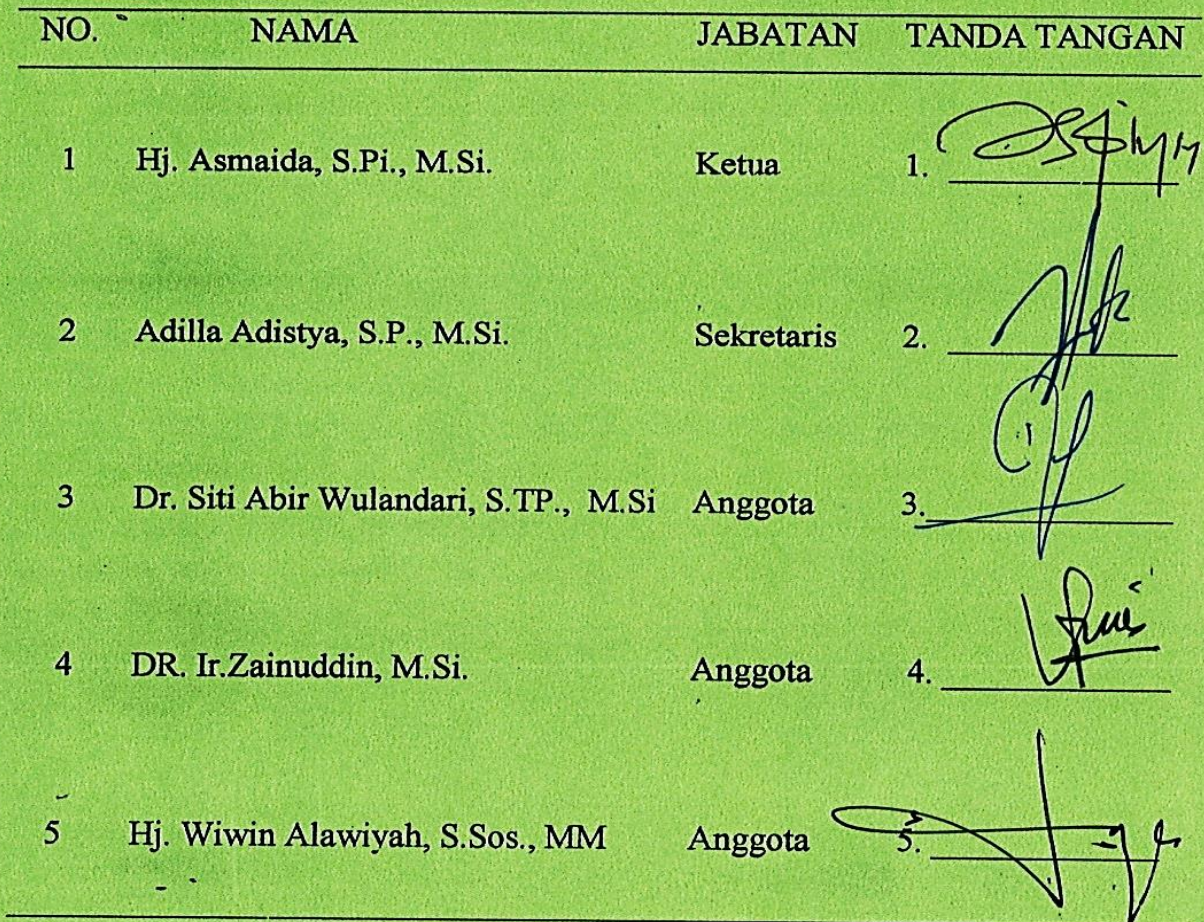 NO. NAMA JABATAN TANDA TANGAN
1 Hj. Asmaida, S.Pi., M.Si. Ketua 1.
2 Adilla Adistya, S.P., M.Si. Sekretaris 2.
3 Dr. Siti Abir Wulandari, S.TP., M.Si Anggota 3.
4 DR. Ir.Zainuddin, M.Si. Anggota 4.
5 Hj. Wiwin Alawiyah, S.Sos., MM Anggota 5.